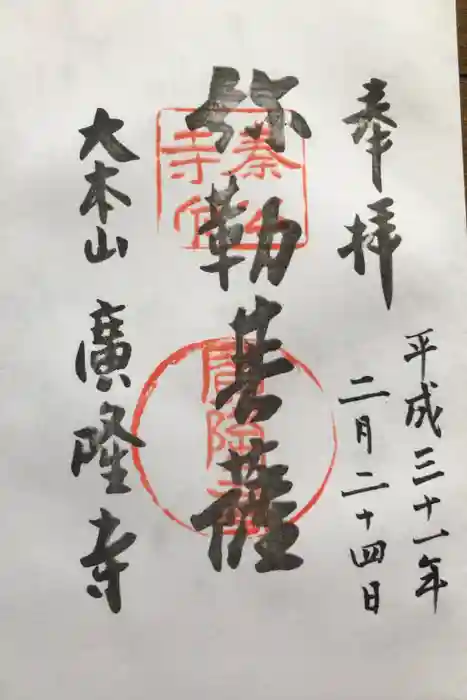 奉拝
平成三十一年
二月二十四日
弥勒菩薩
大本山 廣隆寺